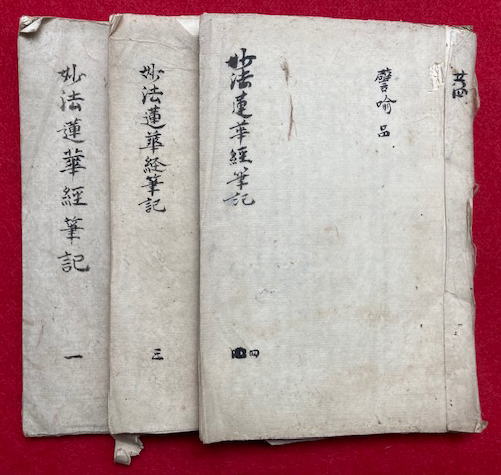 妙法蓮華經筆記
一
妙法蓮華経筆記
三
妙法蓮華經筆記
四
譬喻品